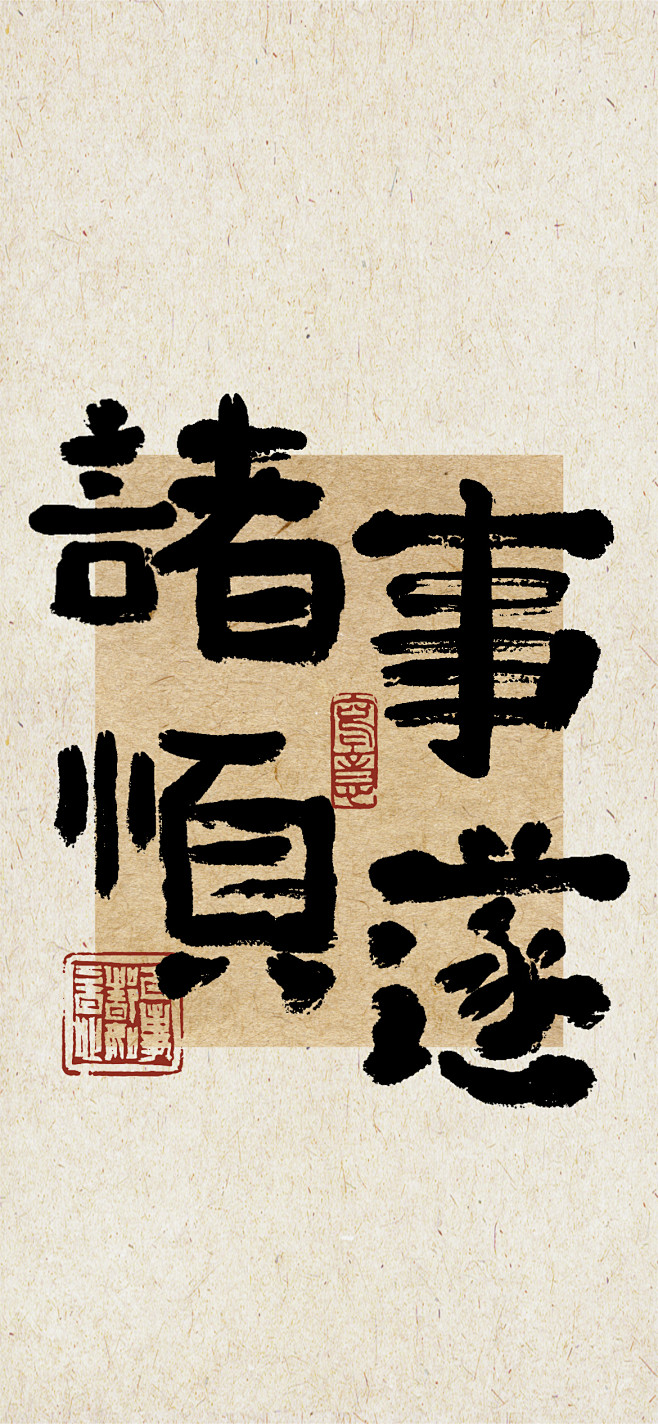 事遂
諸順